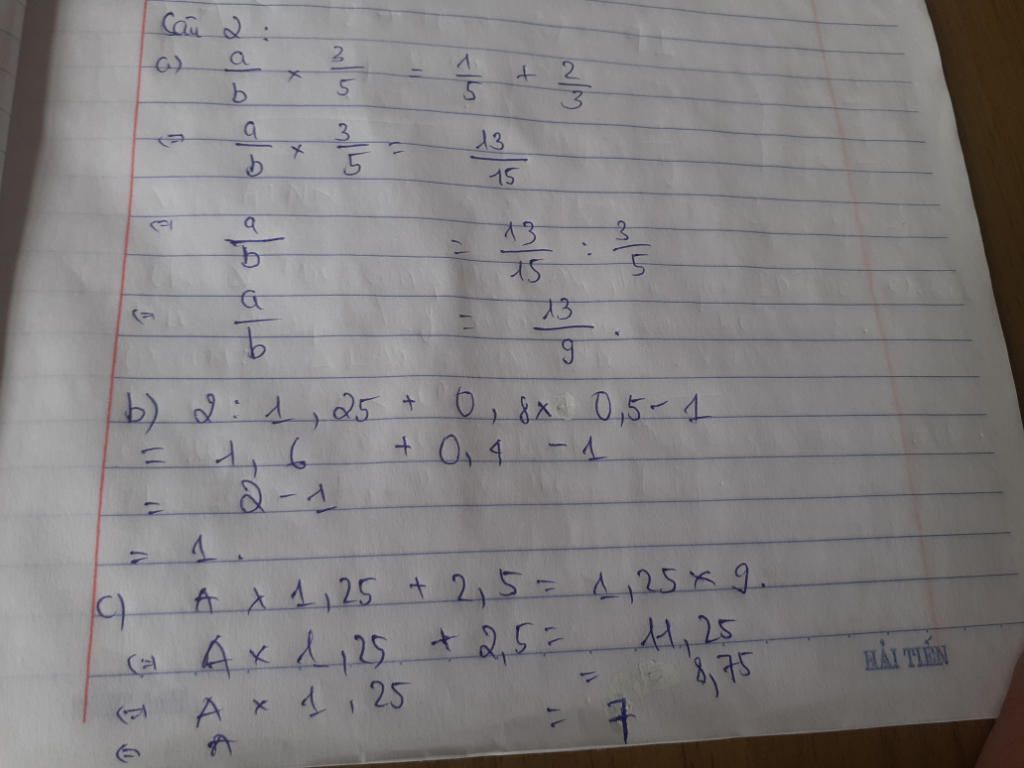 Câu 2:
a) a/b × 3/5 = 1/5 + 2/3
⇔ a/b × 3/5 = 13/15
⇔ a/b = 13/15 : 3/5
⇔ a/b = 13/9.
b) 2 : 1,25 + 0,8 × 0,5 - 1
= 1,6 + 0,4 - 1
= 2 - 1
= 1.
c) A × 1,25 + 2,5 = 1,25 × 9.
⇔ A × 1,25 + 2,5 = 11,25
⇔ A × 1,25 = 8,75
⇔ A = 7
HẢI TIẾN